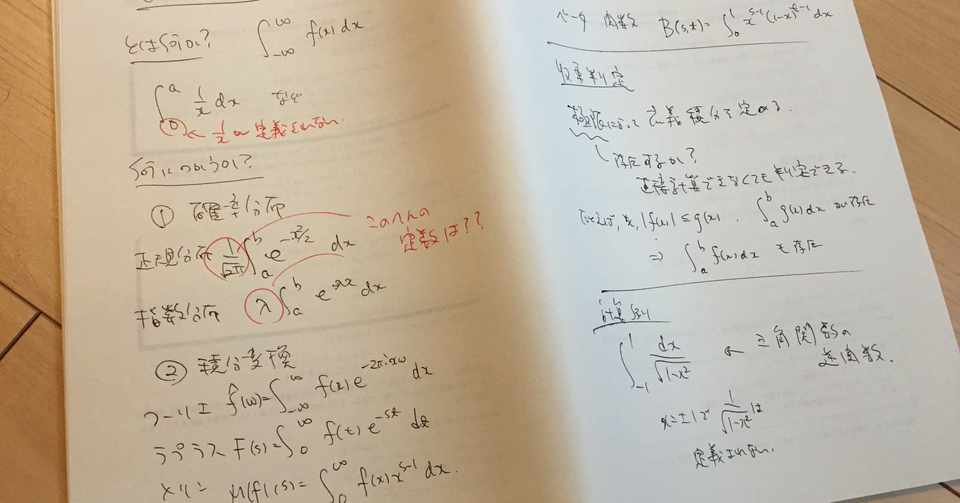 とは何か? ∫_{-∞}^{∞} f(x) dx
∫_0^a 1/x dx など
← 1/x が定義されない
何につかうの?
① 確率分布
正規分布 1/√2π ∫_a^b e^{-x²/2} dx
このへんの
定数は??
指数分布 λ ∫_a^b e^{-λx} dx
② 積分変換
フーリエ f(ω)=∫_{-∞}^{∞} f(x) e^{-2πixω} dx
ラプラス F(s)=∫_0^∞ f(t) e^{-st} dt
M(f)(s)=∫_0^∞ f(x) x^{s-1} dx.
ベータ関数 B(s,t)=∫_0^1 x^{s-1}(1-x)^{t-1} dx
収束判定
極限によって広義積分を定める.
存在するか?
直接計算できなくても判定できる.
たとえば, |f(x)| ≤ g(x), ∫_a^b g(x) dx が存在
⇒ ∫_a^b f(x) dx も存在
計算例
∫_{-1}^1 dx/√1-x² ← 三角関数の
逆関数.
x=±1で 1/√1-x² は
定義されない.